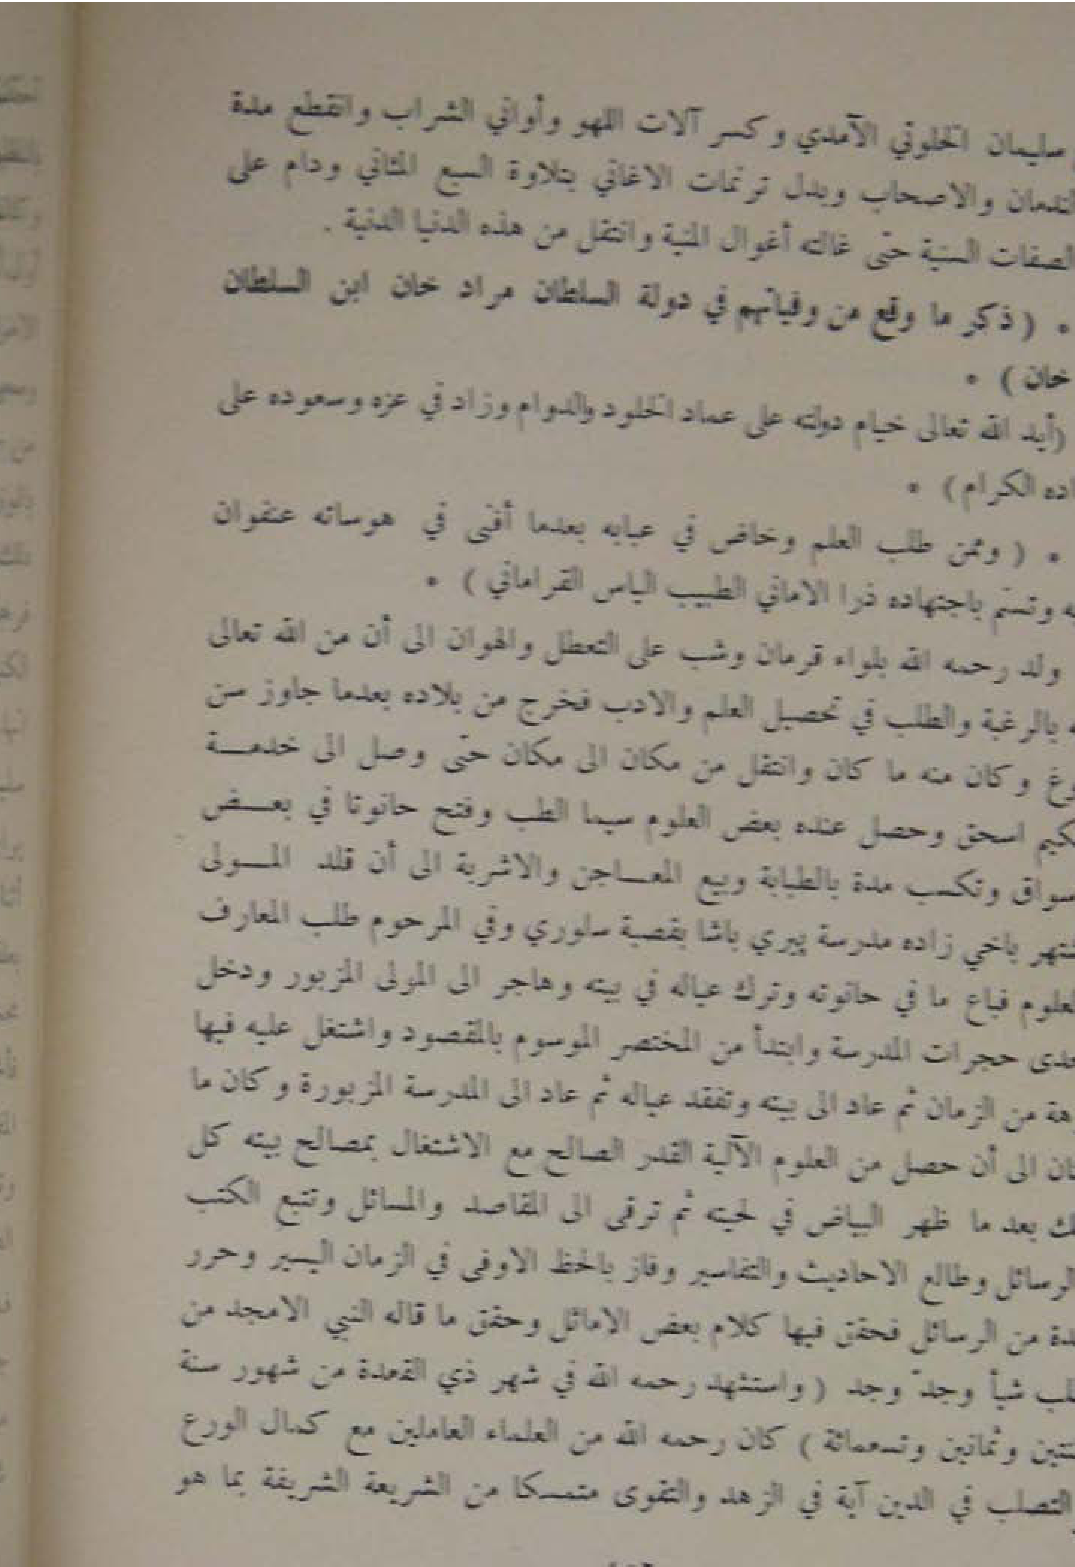 سليمان الخلوتي الآمدي وكسر آلات اللهو وأواني الشراب وانقطع مدة
الندمان والاصحاب وبدل ترنمات الاغاني بتلاوة السبع المثاني ودام على
الصفات السنية حتى غالته أغوال المنية وانتقل من هذه الدنيا الدنية .
* ( ذكر ما وقع من وفياتهم في دولة السلطان مراد خان ابن السلطان
خان ) *
(أيد الله تعالى خيام دولته على عماد الخلود والدوام وزاد في عزه وسعوده على
اده الكرام ) *
* ( وممن طلب العلم وخاض في عبابه بعدما أفنى في هوساته عنفوان
به وتسنم باجتهاده ذرا الاماني الطبيب الياس القراماني ) *
ولد رحمه الله بلواء قرمان وشب على التعطل والهوان الى أن من الله تعالى
ه بالرغبة والطلب في تحصيل العلم والادب فخرج من بلاده بعدما جاوز سن
وغ وكان منه ما كان وانتقل من مكان الى مكان حتى وصل الى خدمــة
كيم اسحق وحصل عنده بعض العلوم سيما الطب وفتح حانوتا في بعــض
سواق وتكسب مدة بالطبابة وبيع المعــاجن والاشربة الى أن قلد المــولى
شتهر باخي زاده مدرسة پيري باشا بقصبة سلوري وفي المرحوم طلب المعارف
لعلوم فباع ما في حانوته وترك عياله في بيته وهاجر الى المولى المزبور ودخل
حدى حجرات المدرسة وابتدأ من المختصر الموسوم بالمقصود واشتغل عليه فيها
هة من الزمان ثم عاد الى بيته وتفقد عياله ثم عاد الى المدرسة المزبورة وكان ما
ان الى أن حصل من العلوم الآلية القدر الصالح مع الاشتغال بمصالح بيته كل
ك بعد ما ظهر البياض في لحيته ثم ترقى الى المقاصد والمسائل وتتبع الكتب
الرسائل وطالع الاحاديث والتفاسير وفاز بالحظ الاوفى في الزمان اليسير وحرر
دة من الرسائل فحقق فيها كلام بعض الاماثل وحقق ما قاله النبي الامجد من
لب شيأ وجدّ وجد ( واستشهد رحمه الله في شهر ذي القعدة من شهور سنة
نتين وثمانين وتسعمائة ) كان رحمه الله من العلماء العاملين مع كمال الورع
التصلب في الدين آية في الزهد والتقوى متمسكا من الشريعة الشريفة بما هو